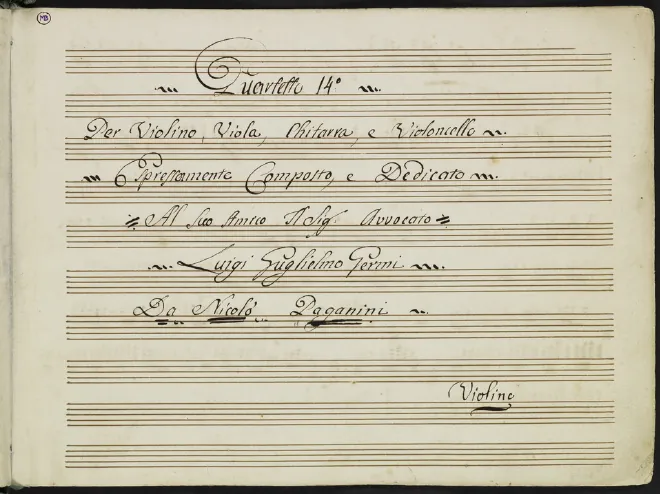 MB
Quartetto 14°
Per Violino, Viola, Chitarra, e Violoncello
Espressamente Composto, e Dedicato
Al Suo Amico Il Sig.r Avvocato
Luigi Guglielmo Germi
Da Nicolò Paganini
Violino